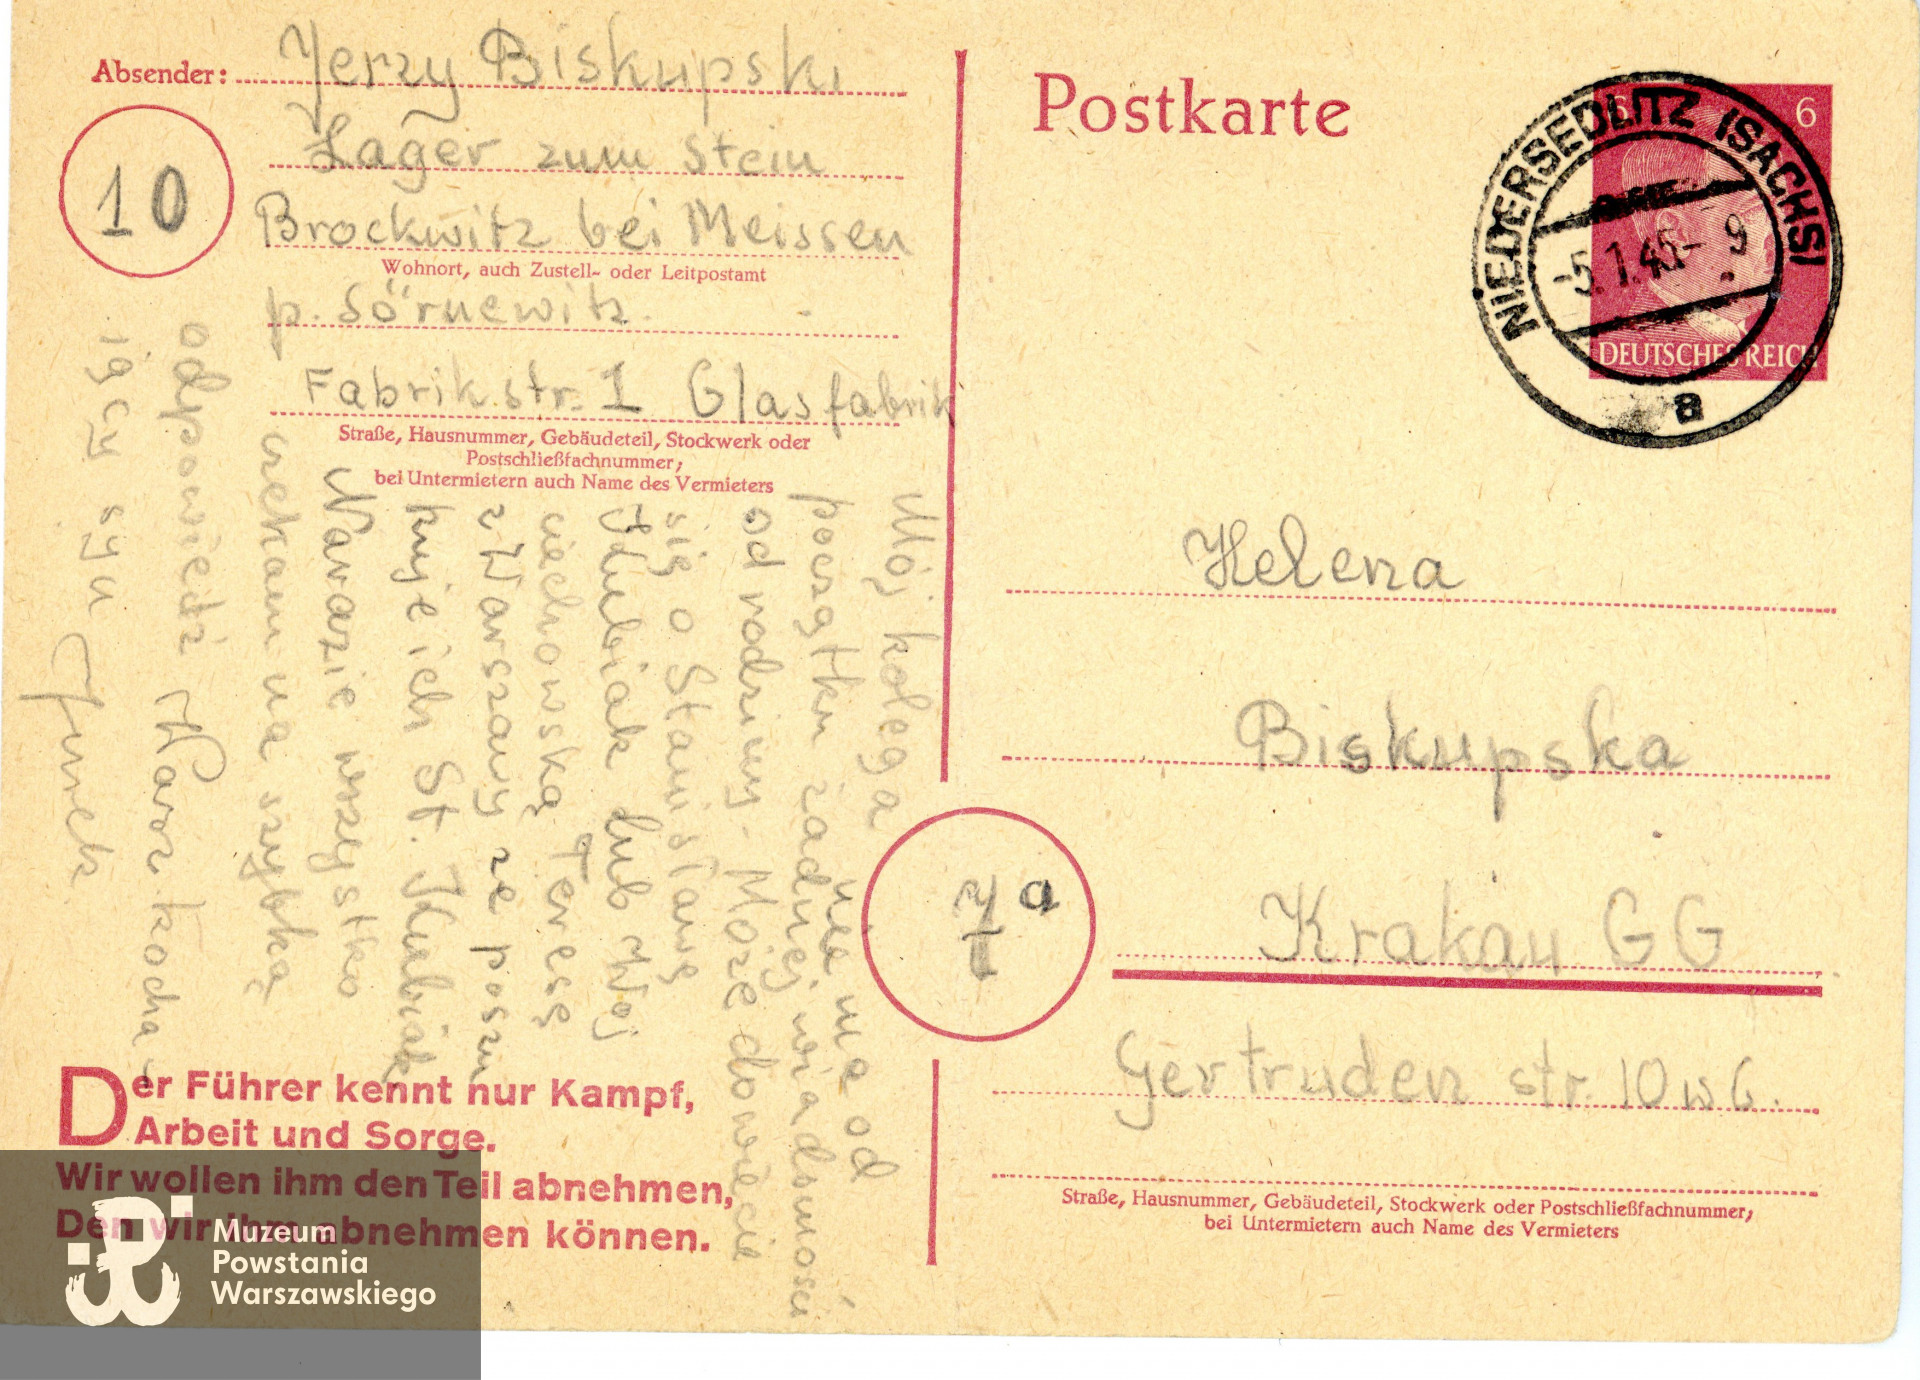 Absender: Jerzy Biskupski
Lager zum Stein
10
Brockwitz bei Meissen
Wohnort, auch Zustell- oder Leitpostamt
p. Sörnewitz.
Fabrik.str. 1 Glasfabrik
Straße, Hausnummer, Gebäudeteil, Stockwerk oder
Postschließfachnummer;
bei Untermietern auch Name des Vermieters
Mój kolega nie ma od
początku żadnej wiadomości
od rodziny. Może dowiecie
się o Stanisławę
Kubiak lub Woj
ciechowską Teresę
z Warszawy ze poszu
kuje ich St. Kubiak
Narazie wszystko
czekam na szybką
odpowiedź Wasz kocha-
jący syn
Jurek
Der Führer kennt nur Kampf,
Arbeit und Sorge.
Wir wollen ihm den Teil abnehmen,
Den wir ihm abnehmen können.
Postkarte
6 6
DEUTSCHES REICH
NIEDERSEDLITZ (SACHS)
-5.1.45- 9
a
Helena
Biskupska
7a
Krakau GG
Gertruden str. 10 w 6.
Straße, Hausnummer, Gebäudeteil, Stockwerk oder Postschließfachnummer;
bei Untermietern auch Name des Vermieters
Muzeum
Powstania
Warszawskiego